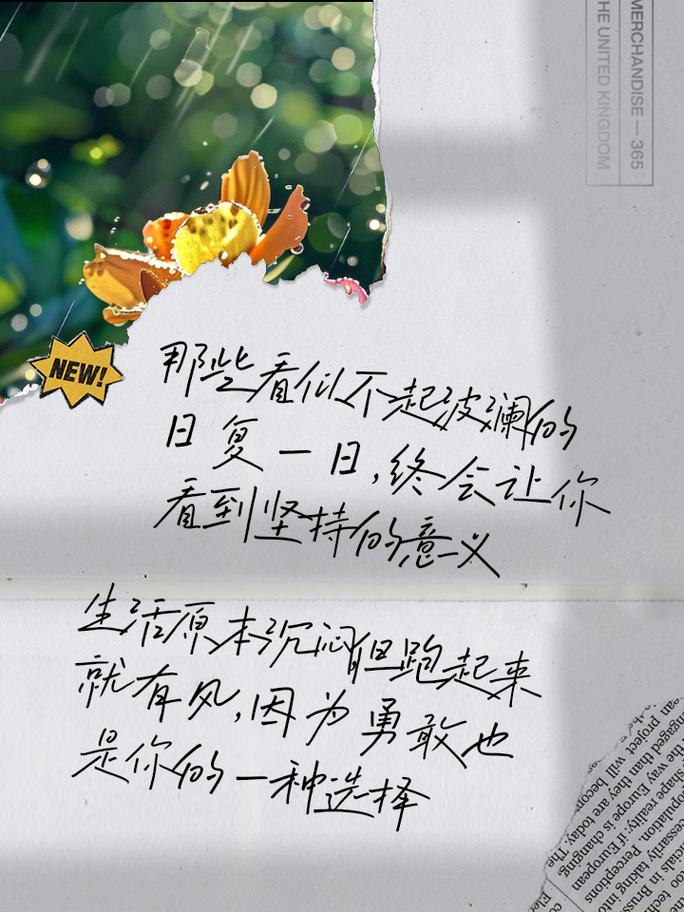 MERCHANDISE — 365
THE UNITED KINGDOM
NEW!
那些看似不起波澜的
日复一日,终会让你
看到坚持的意义
生活原本沉闷但跑起来
就有风,因为勇敢也
是你的一种选择
project will become
than they are today. The
the way Europe is changing
shape reality: if European
population. Perceptions
cessarily taking into
cials in Bruss
too tech